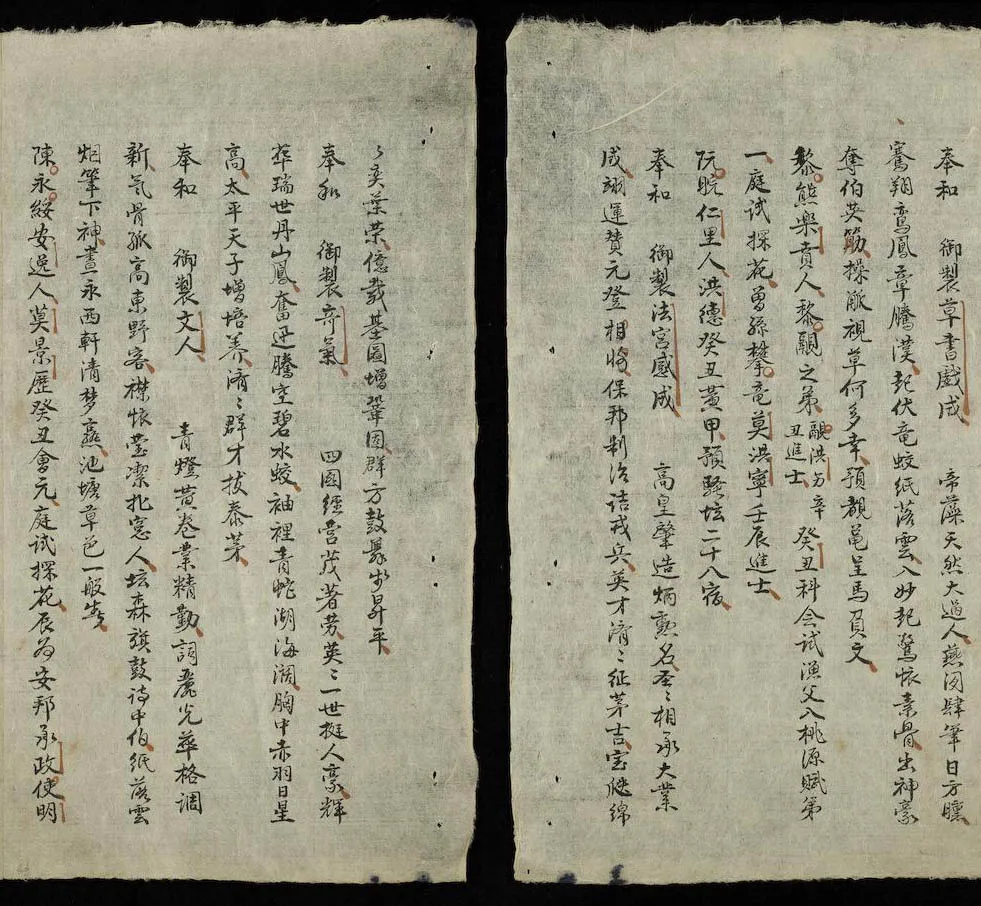 奉和　御製草書戲成　帝藻天然大過人燕閒肆筆日方曛
騫翔鸞鳳章騰漢起伏竜蛟紙落雲入妙起驚懷素骨出神豪
奪伯英筋操觚視草何多幸預覩黽呈馬負文
黎熊樂賁人黎覿之弟覿洪安辛丑進士癸丑科会試漁父入桃源賦第
一庭試探花曽孫攀竜莫洪寧壬辰進士
阮晥仁里人洪德癸丑黃甲預騷坛二十八宿
奉和　御製法宮感成　高皇肇造炳勲名圣〻相承大業
成翊運賛元登相將保邦制治詰戎兵英才済〻征茅吉宝𦀎綿
〻奕葉荣億載基圖增鞏固群方鼓舞樂昇平
奉和　御製奇氣　四圍經营茂著劳英〻一世挺人豪輝
華瑞世丹山鳳奮迅騰空碧水蛟袖裡青蛇湖海濶胸中赤羽日星
高太平天子增培养済〻群才拔泰茅
奉和　御製文人　青燈黃卷業精勤詞麗光華格調
新氣骨孤高東野客襟懷莹潔北窓人坛森旗鼓詩中伯紙落雲
烟筆下神晝永西軒清梦熹池塘草色一般春
陳永綏安逸人莫景歷癸丑會元庭試探花辰为安邦承政使明